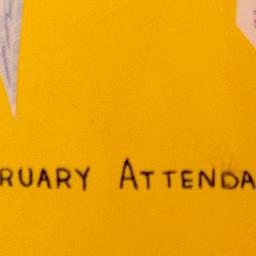 RUARY ATTENDA